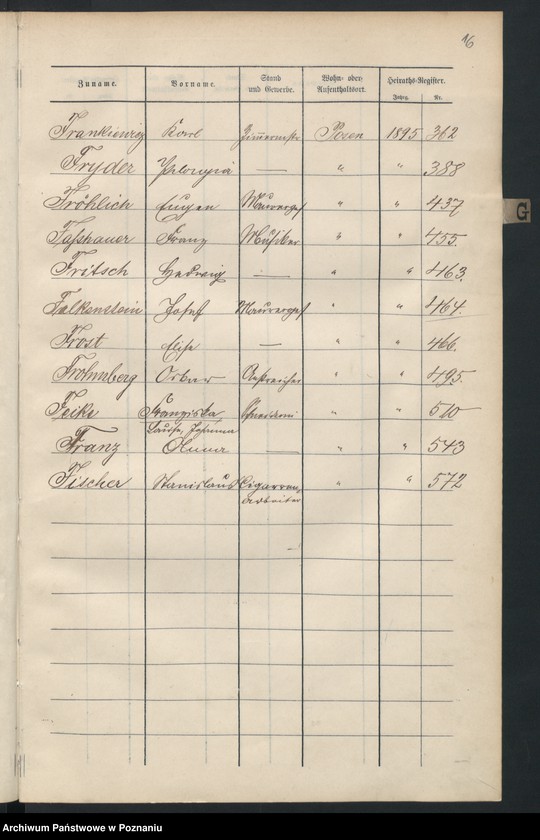 16
Zuname. Vorname. Stand und Gewerbe. Wohn- oder Aufenthaltsort. Heiraths-Register.
Jahrg. Nr.
Frankiewicz Karl Zimmermstr Posen 1895 362
Fryder — " " 388
Fröhlich Eugen Maurerges " " 437
Faßhauer Franz Musiker " " 455.
Fritsch Hedwig — " " 463.
Falkenstein Josef Maurerges " " 464.
Frost Elise — " " 466.
Frohnberg Anstreicher " " 495.
Feike Franziska Schneiderin " " 510
Franz — " " 543
Fischer Stanislaus Cigarren- " " 572
arbeiter
G
Archiwum Państwowe w Poznaniu